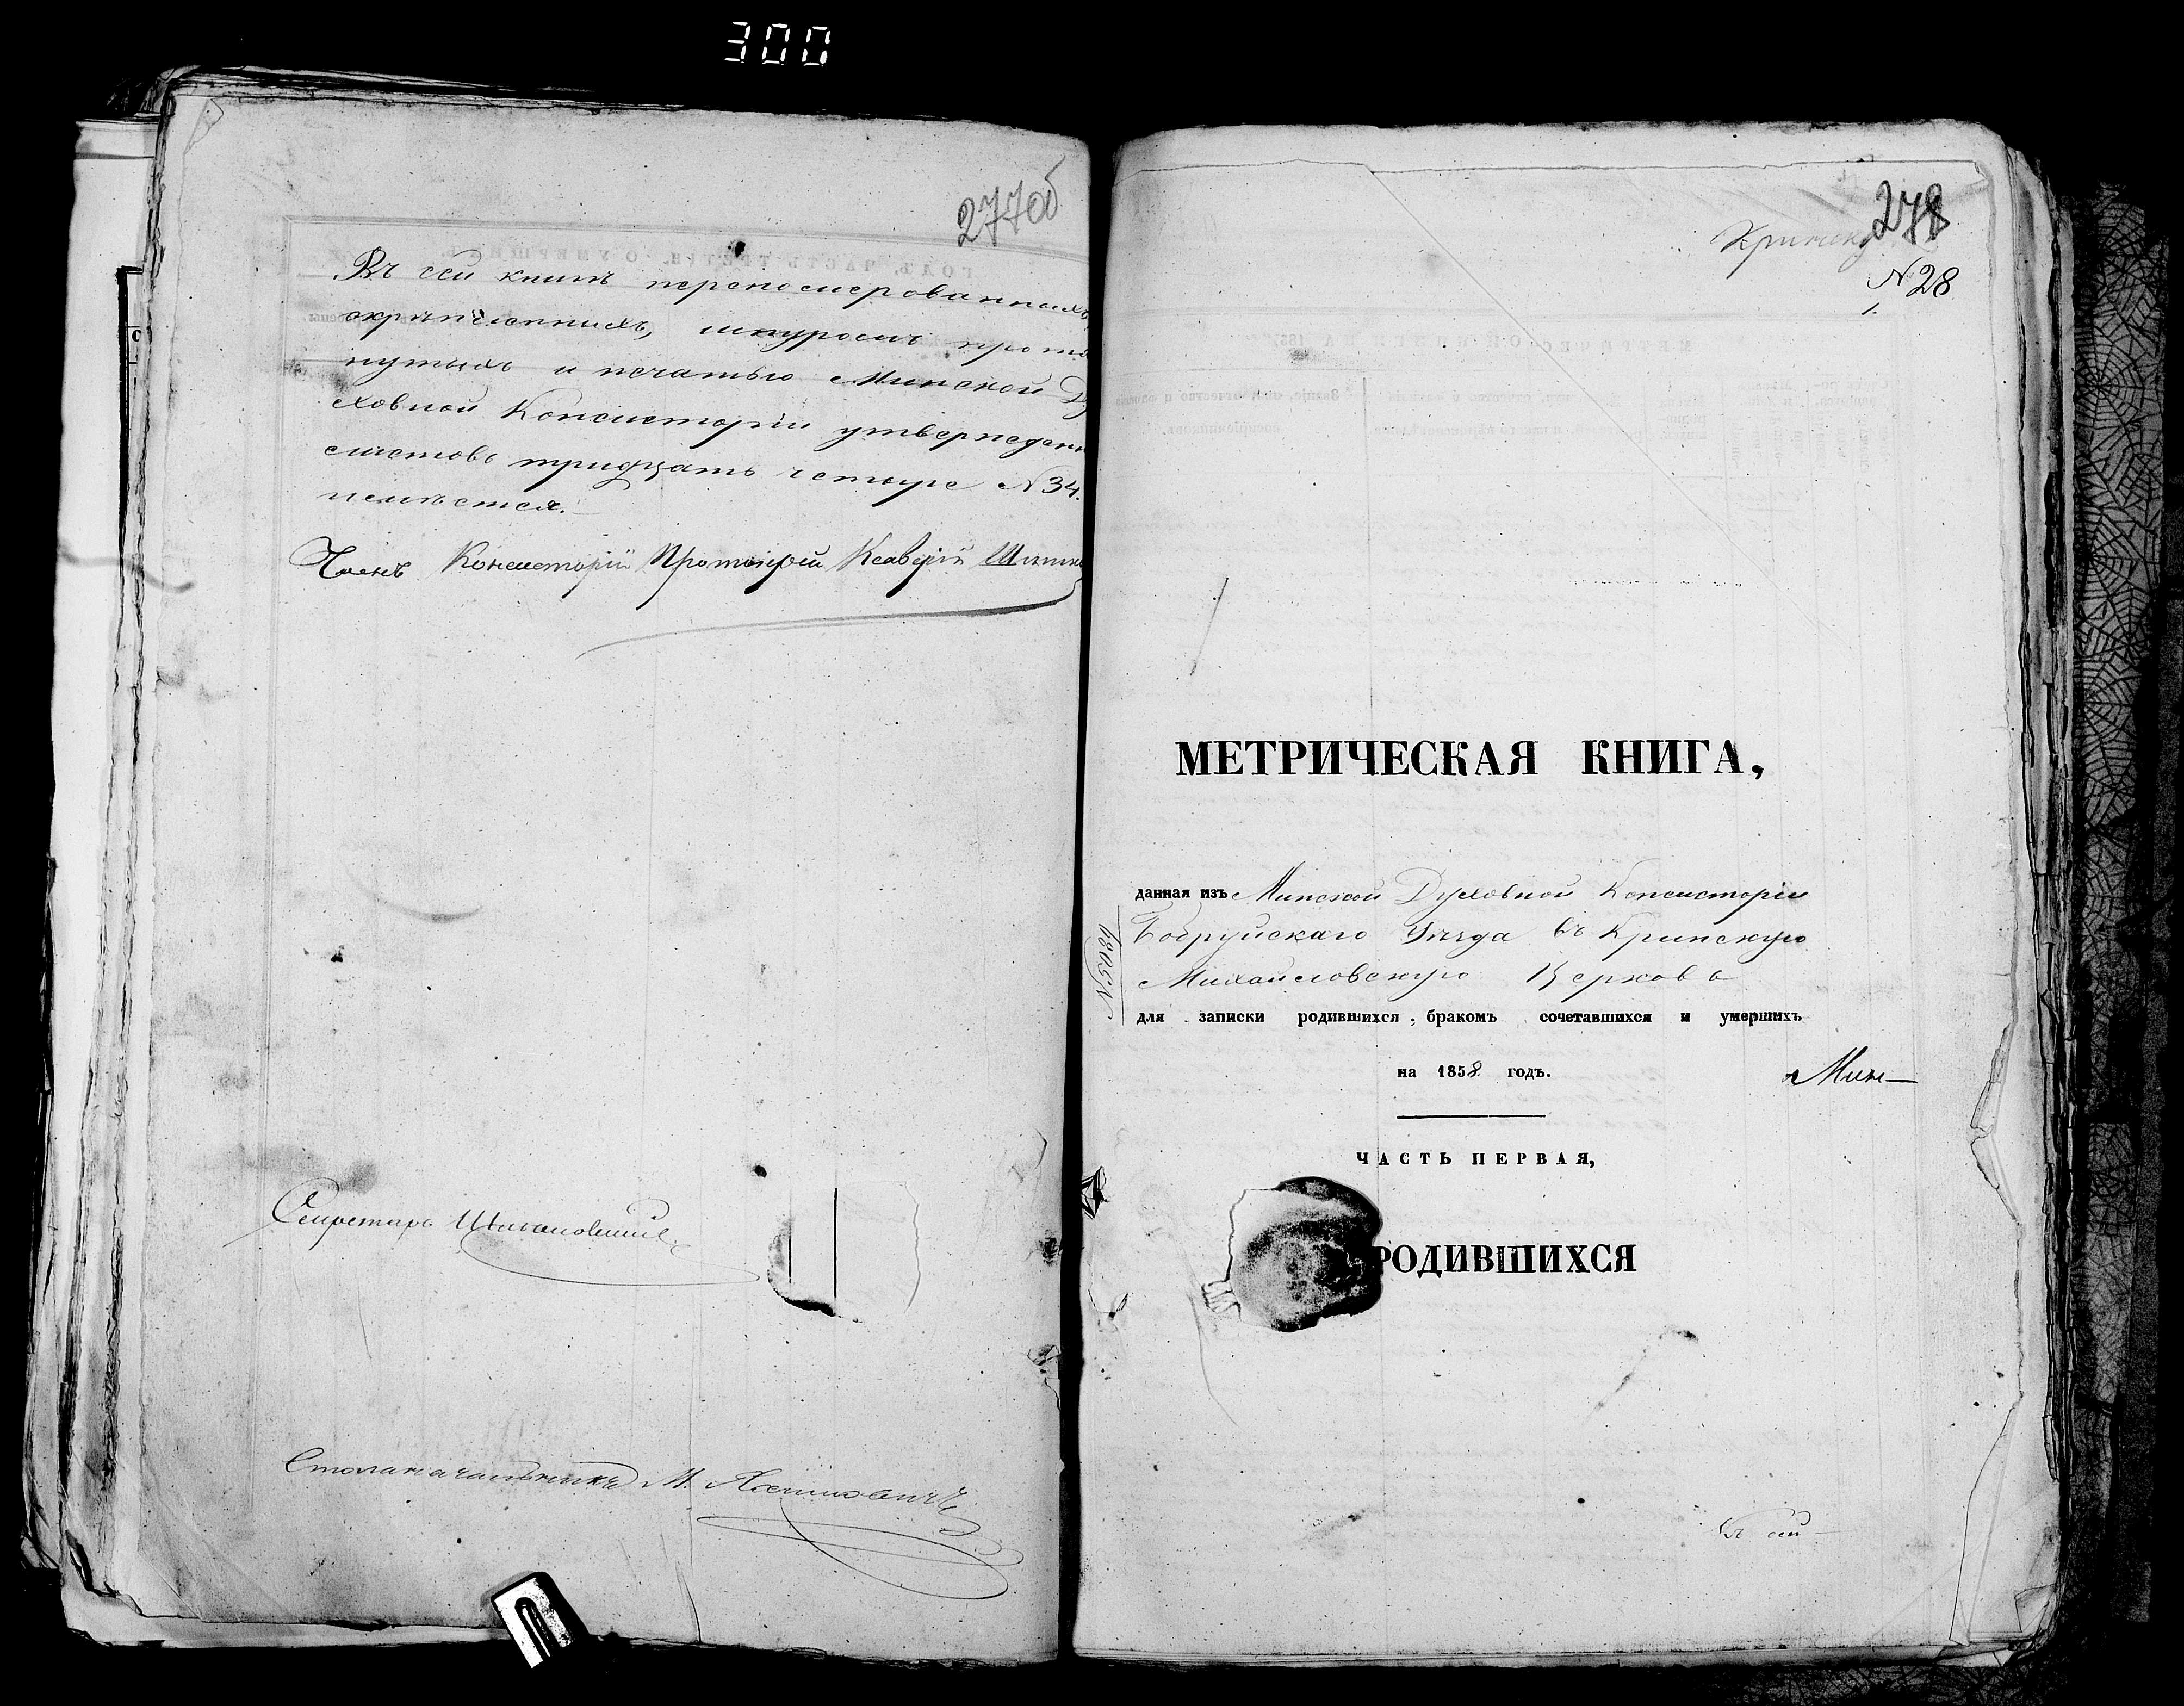 300
277об
Въ сей книгѣ перенумерованныхъ,
скрѣпленныхъ, шнуромъ протя
нутыхъ и печатью Минской Ду
ховной Консисторіи утвержден
листовъ тридцать четыре №34.
имѣется.
Членъ Консисторіи Протоіерей Ксаверій
Секретарь
Столоначальникъ М.
278
№28
1.
МЕТРИЧЕСКАЯ КНИГА,
данная изъ Минской Духовной Консисторіи
Бобруйскаго Уѣзда въ Кринскую
Михайловскую Церковь
№5084
для записки родившихся, бракомъ сочетавшихся и умершихъ
на 1858 годъ.
Мин—
ЧАСТЬ ПЕРВАЯ,
РОДИВШИХСЯ
Въ сей —